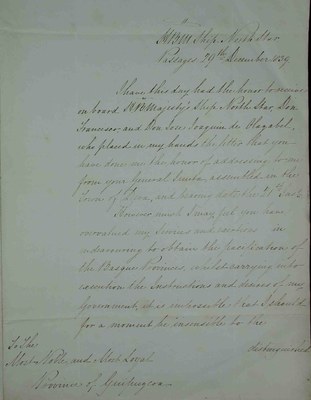 HBM Ship North Star
Passages 29th December 1839
I have this day had the honor to receive
on board H B Majesty's Ship North Star, Don
Francisco and Don José Joaquin de Olazabal,
who placed in my hands the letter that you
have done me the honor of addressing to me
from your General Junta, assembled in the
Town of Deva, and bearing date the 21st Inst.
However much I may feel you have
overvalued my Services and exertions in
endeavouring to obtain the pacification of
the Basque Provinces, whilst carrying into
execution the Instructions and desires of my
Government, it is impossible that I should
for a moment be insensible to the
To The
Most Noble and Most Loyal
Province of Guipuzcoa